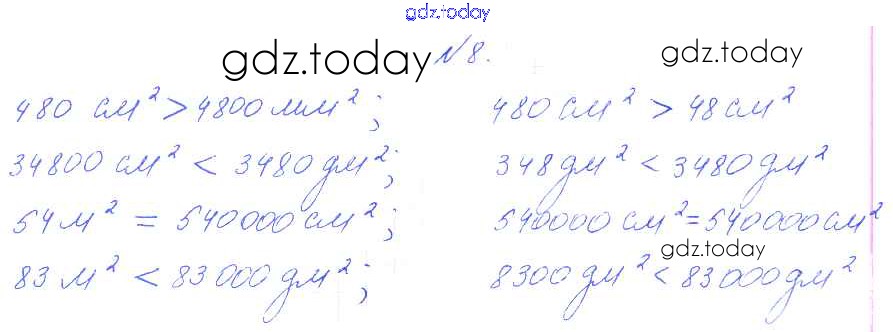 gdz.today
gdz.today №8. gdz.today
480 см² > 4800 мм²; 480 см² > 48 см²
34800 см² < 3480 дм²; 348 дм² < 3480 дм²
54 м² = 540000 см²; 540000 см² = 540000 см²
gdz.today
83 м² < 83000 дм²; 8300 дм² < 83000 дм²